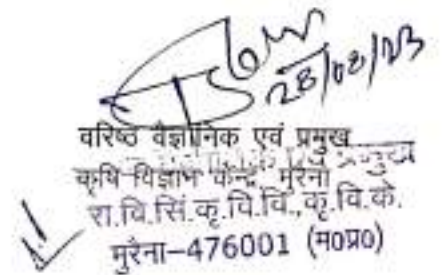 28/08/23
वरिष्ठ वैज्ञानिक एवं प्रमुख
कृषि विज्ञान केन्द्र, मुरैना
रा.वि.सिं.कृ.वि.वि.,कृ.वि.के.
मुरैना-476001 (म०प्र०)